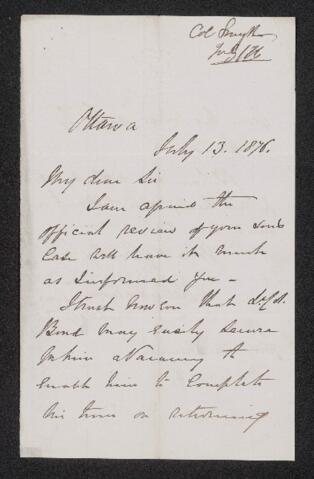 Col Smyth
July 1876
Ottawa
July 13. 1876.
My dear Sir
I am afraid the
official review of your son's
Case will leave it much
as I informed you -
I trust however that
Bond may easily secure
a Vacancy to
enable him to Complete
his time on returning